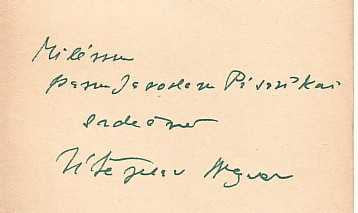 Milému
panu Jaroslavu Písaříkovi
srdečně
Vítězslav Nezval